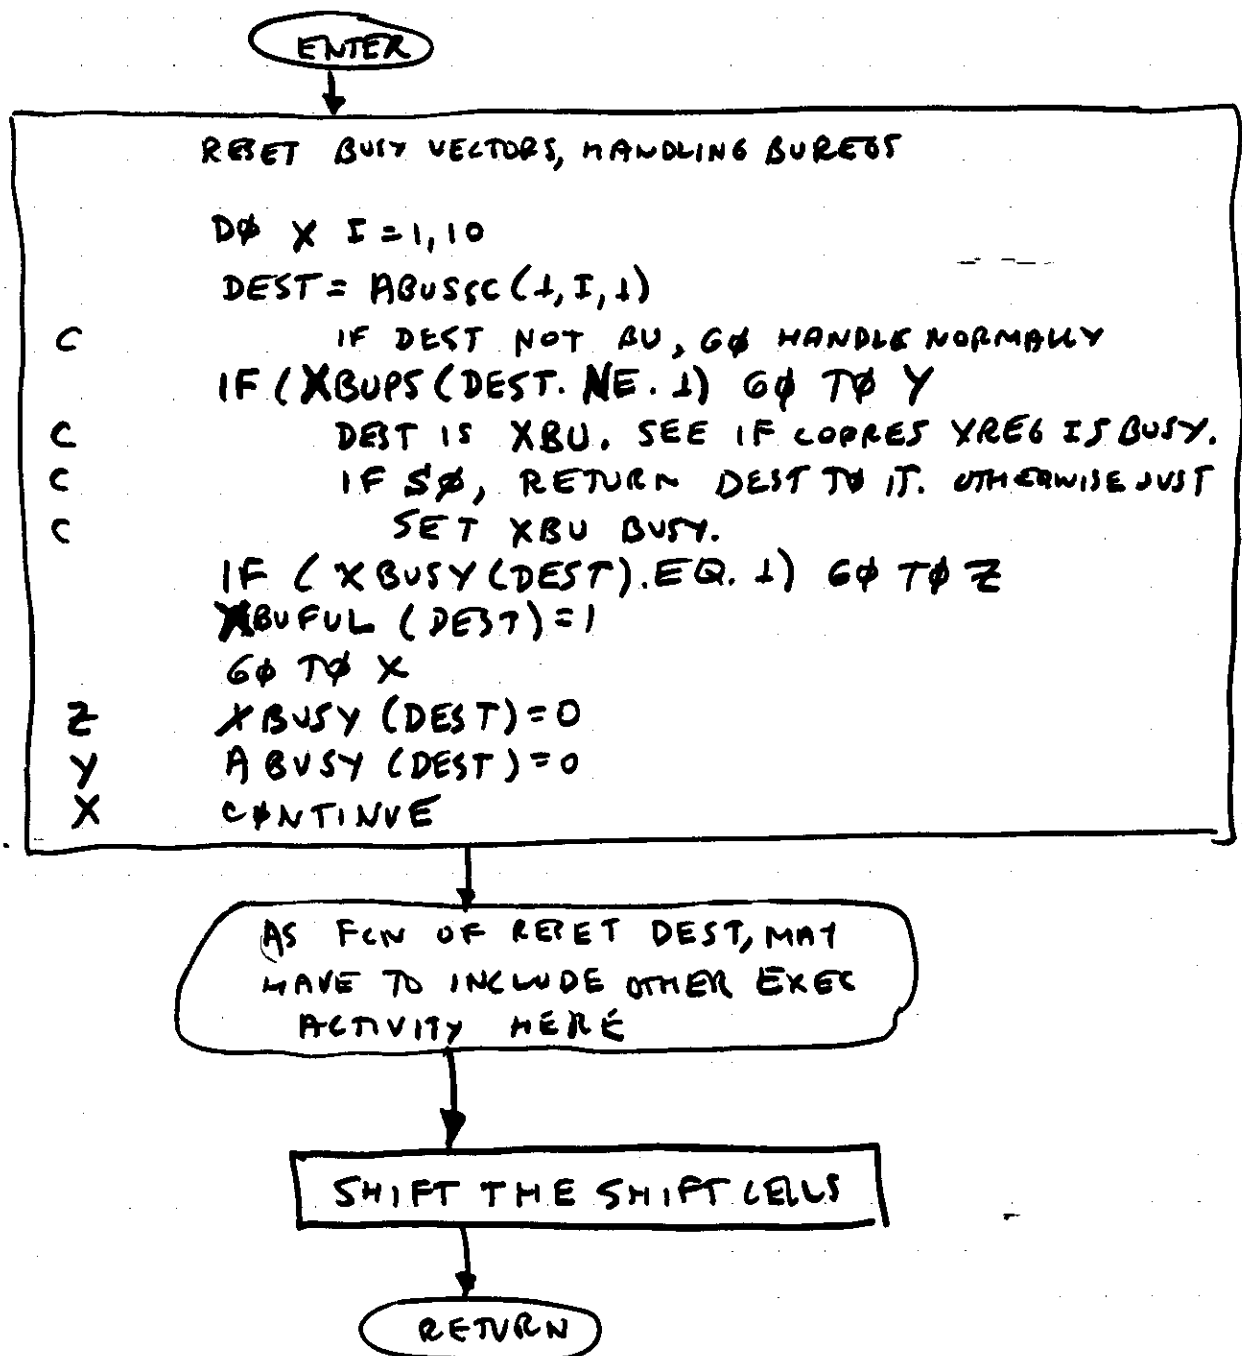 ENTER
RESET BUSY VECTORS, HANDLING BUREGS
DØ X I = 1, 10
DEST = ABUSSC (1, I, 1)
C IF DEST NOT BU, GØ HANDLE NORMALLY
IF (XBUPS (DEST. NE. 1) GØ TØ Y
C DEST IS XBU. SEE IF CORRES XREG IS BUSY.
C IF SØ, RETURN DEST TØ IT. OTHERWISE JUST
C SET XBU BUSY.
IF (XBUSY (DEST). EQ. 1) GØ TØ Z
XBUFUL (DEST) = 1
GØ TØ X
Z XBUSY (DEST) = 0
Y ABUSY (DEST) = 0
X CØNTINUE
AS FCN OF RESET DEST, MAY
HAVE TO INCLUDE OTHER EXEC
ACTIVITY HERE
SHIFT THE SHIFT CELLS
RETURN